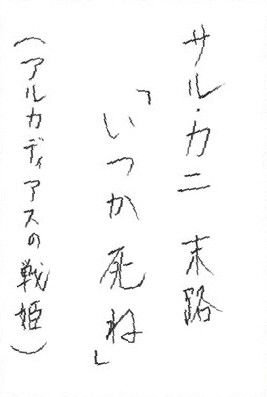 サル・カニ 末路
「いつか死ね」
(アルカディアスの戦姫)